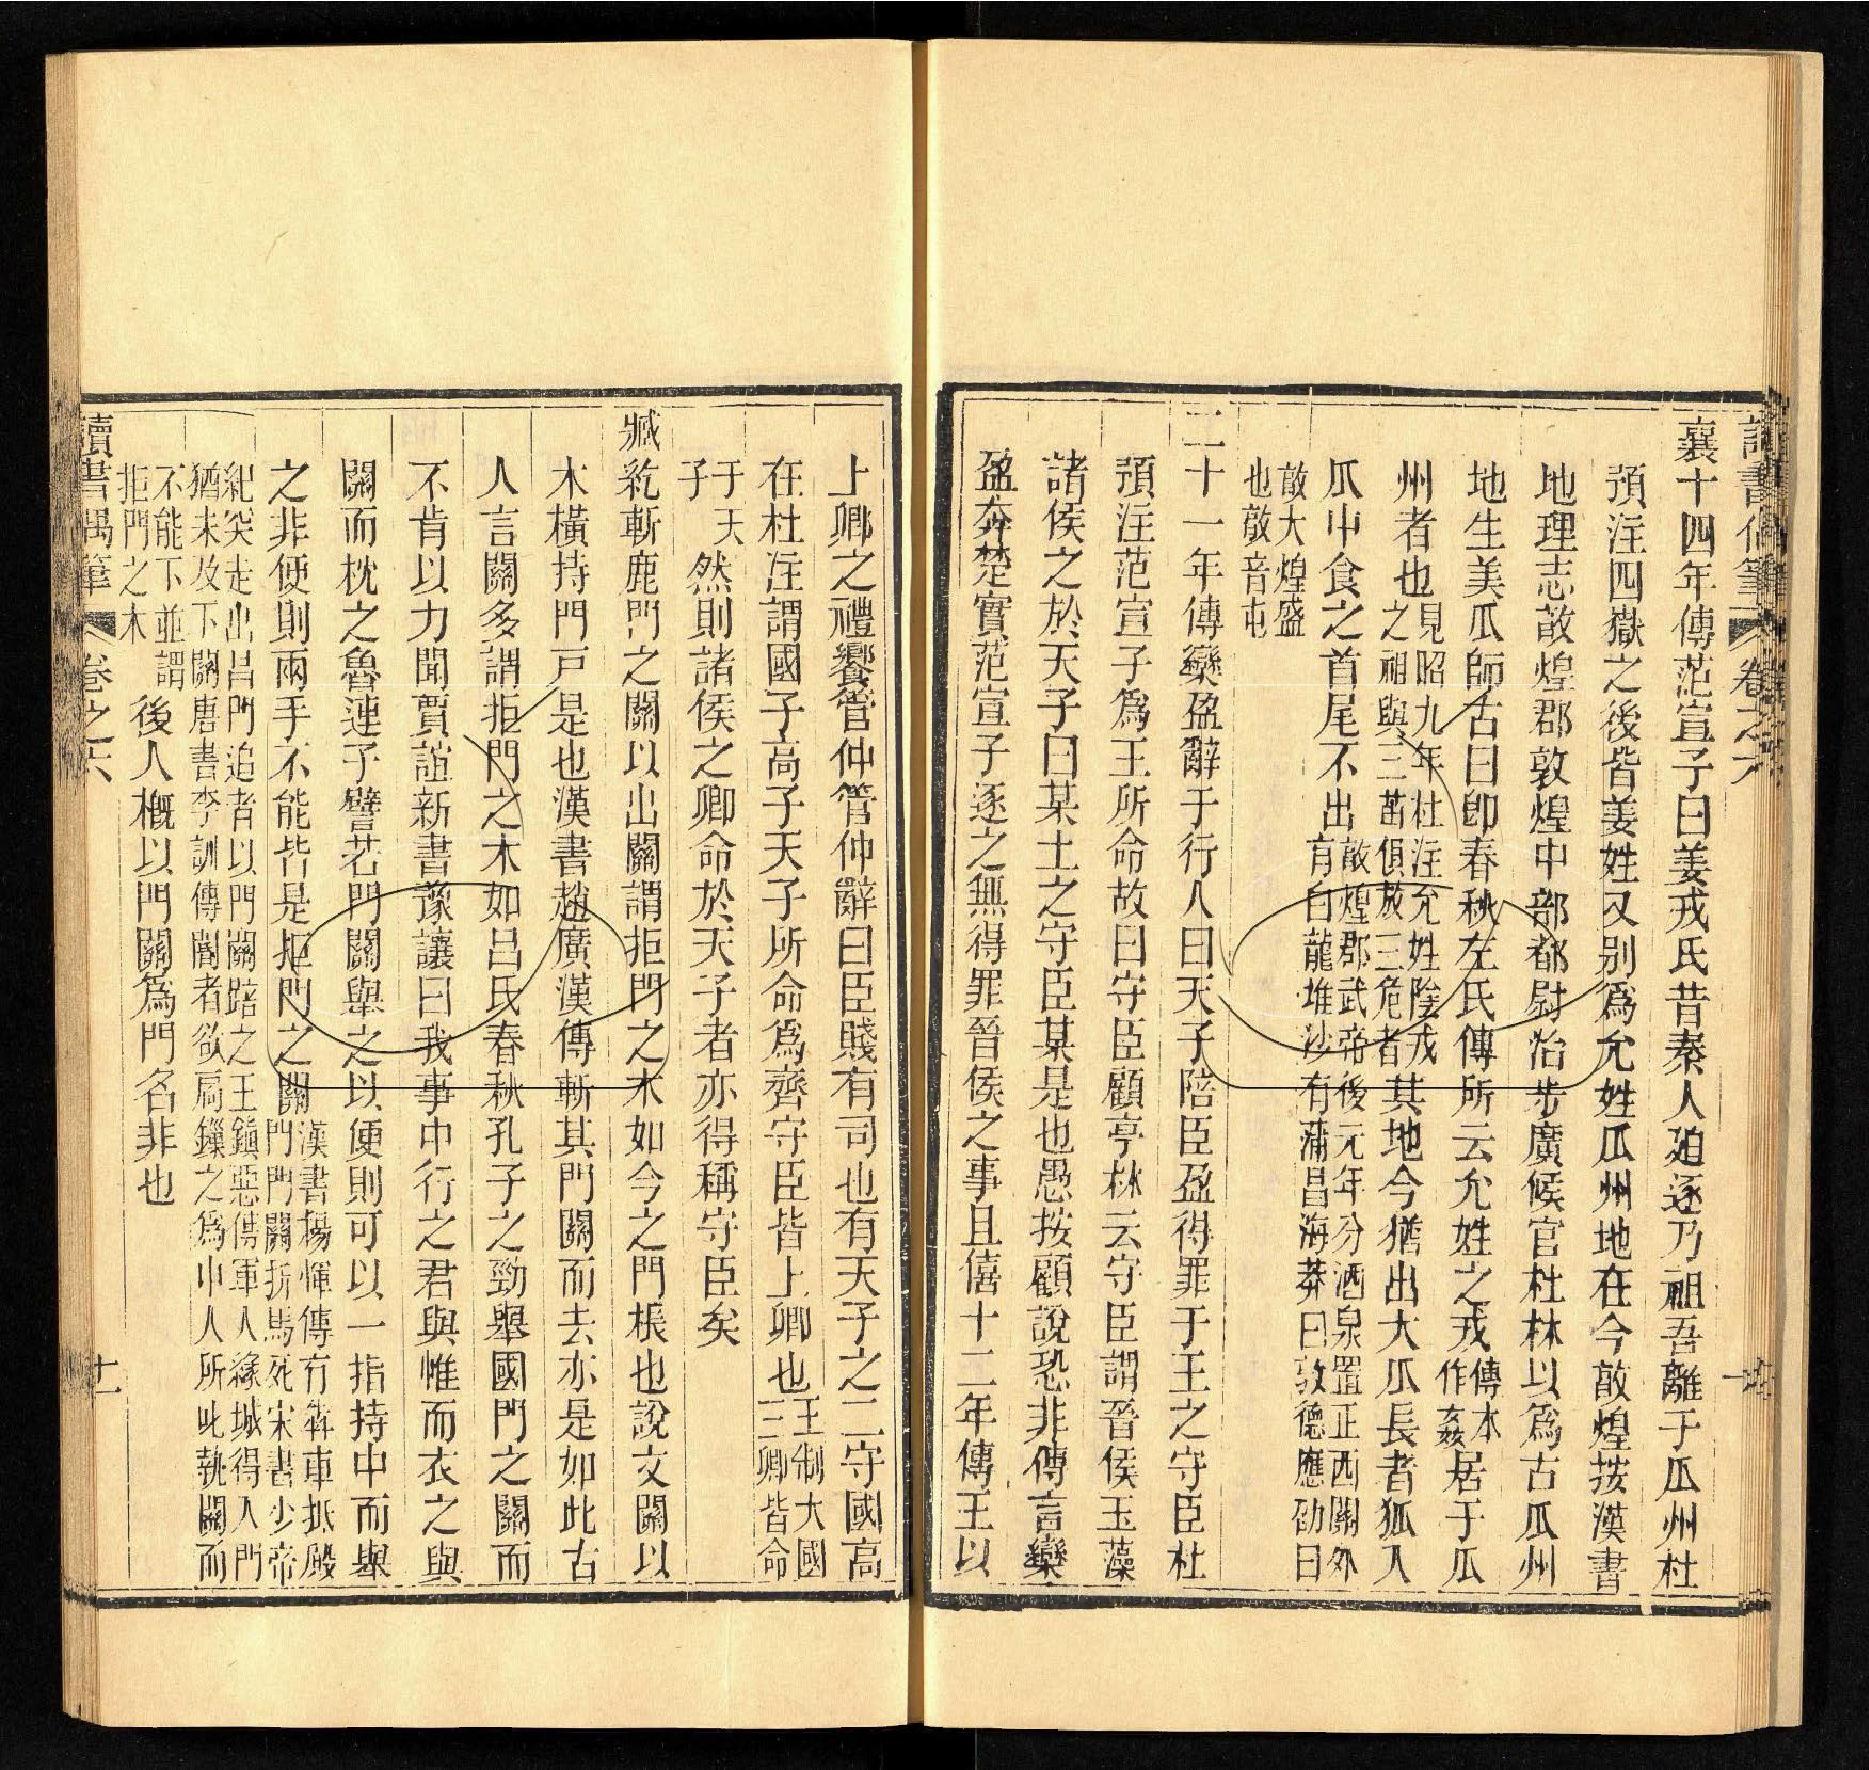 讀書偶筆 卷之六
襄十四年傳范宣子曰姜戎氏昔秦人廹逐乃祖吾離于瓜州杜
預注四嶽之後皆姜姓又别爲允姓瓜州地在今敵煌按漢書
地理志敵煌郡敦煌中部都尉治步廣候官杜林以爲古瓜州
地生美瓜師古曰卽春秋左氏傳所云允姓之戎傳本作姦居于瓜
州者也見昭九年杜注允姓陰戎之祖與三苗俱放三危者其地今猶出大瓜長者狐入
瓜中食之首尾不出敵煌郡武帝後元年分酒泉置正西關外有白龍堆沙有蒲昌海莽曰敦德應劭曰
敵大煌盛也敵音屯
二十一年傳欒盈辭于行人曰天子陪臣盈得罪于王之守臣杜
預注范宣子爲王所命故曰守臣顧亭林云守臣謂晉侯玉藻
諸侯之於天子曰某土之守臣某是也愚按顧說恐非傳言欒
盈奔楚實范宣子逐之無得罪晉侯之事且僖十二年傳王以
上卿之禮饗管仲管仲辭曰臣賤有司也有天子之二守國高
在杜注謂國子高子天子所命爲齊守臣皆上卿也王制大國三卿皆命
于天子然則諸侯之卿命於天子者亦得稱守臣矣
臧紇斬鹿門之關以出關謂拒門之木如今之門棖也說文關以
木橫持門戸是也漢書趙廣漢傳斬其門關而去亦是如此古
人言關多謂拒門之木如呂氏春秋孔子之勁舉國門之關而
不肯以力聞賈誼新書豫讓曰我事中行之君與帷而衣之與
關而枕之魯連子譬若門關舉之以便則可以一指持中而舉
之非便則兩手不能皆是拒門之關漢書楊惲傳有犇車抵殿門門關折馬死宋書少帝
紀突走出昌門追者以門關踣之王鎭惡傳軍人緣城得入門猶未及下關唐書李訓傳閽者欲扃鏁之爲中人所叱執關而
不能下並謂拒門之木後人槪以門關爲門名非也
讀書偶筆 卷之六 十一